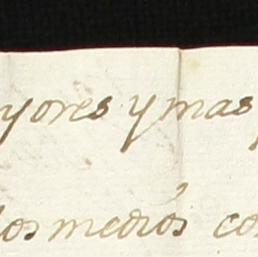 yores y mas
los medios co